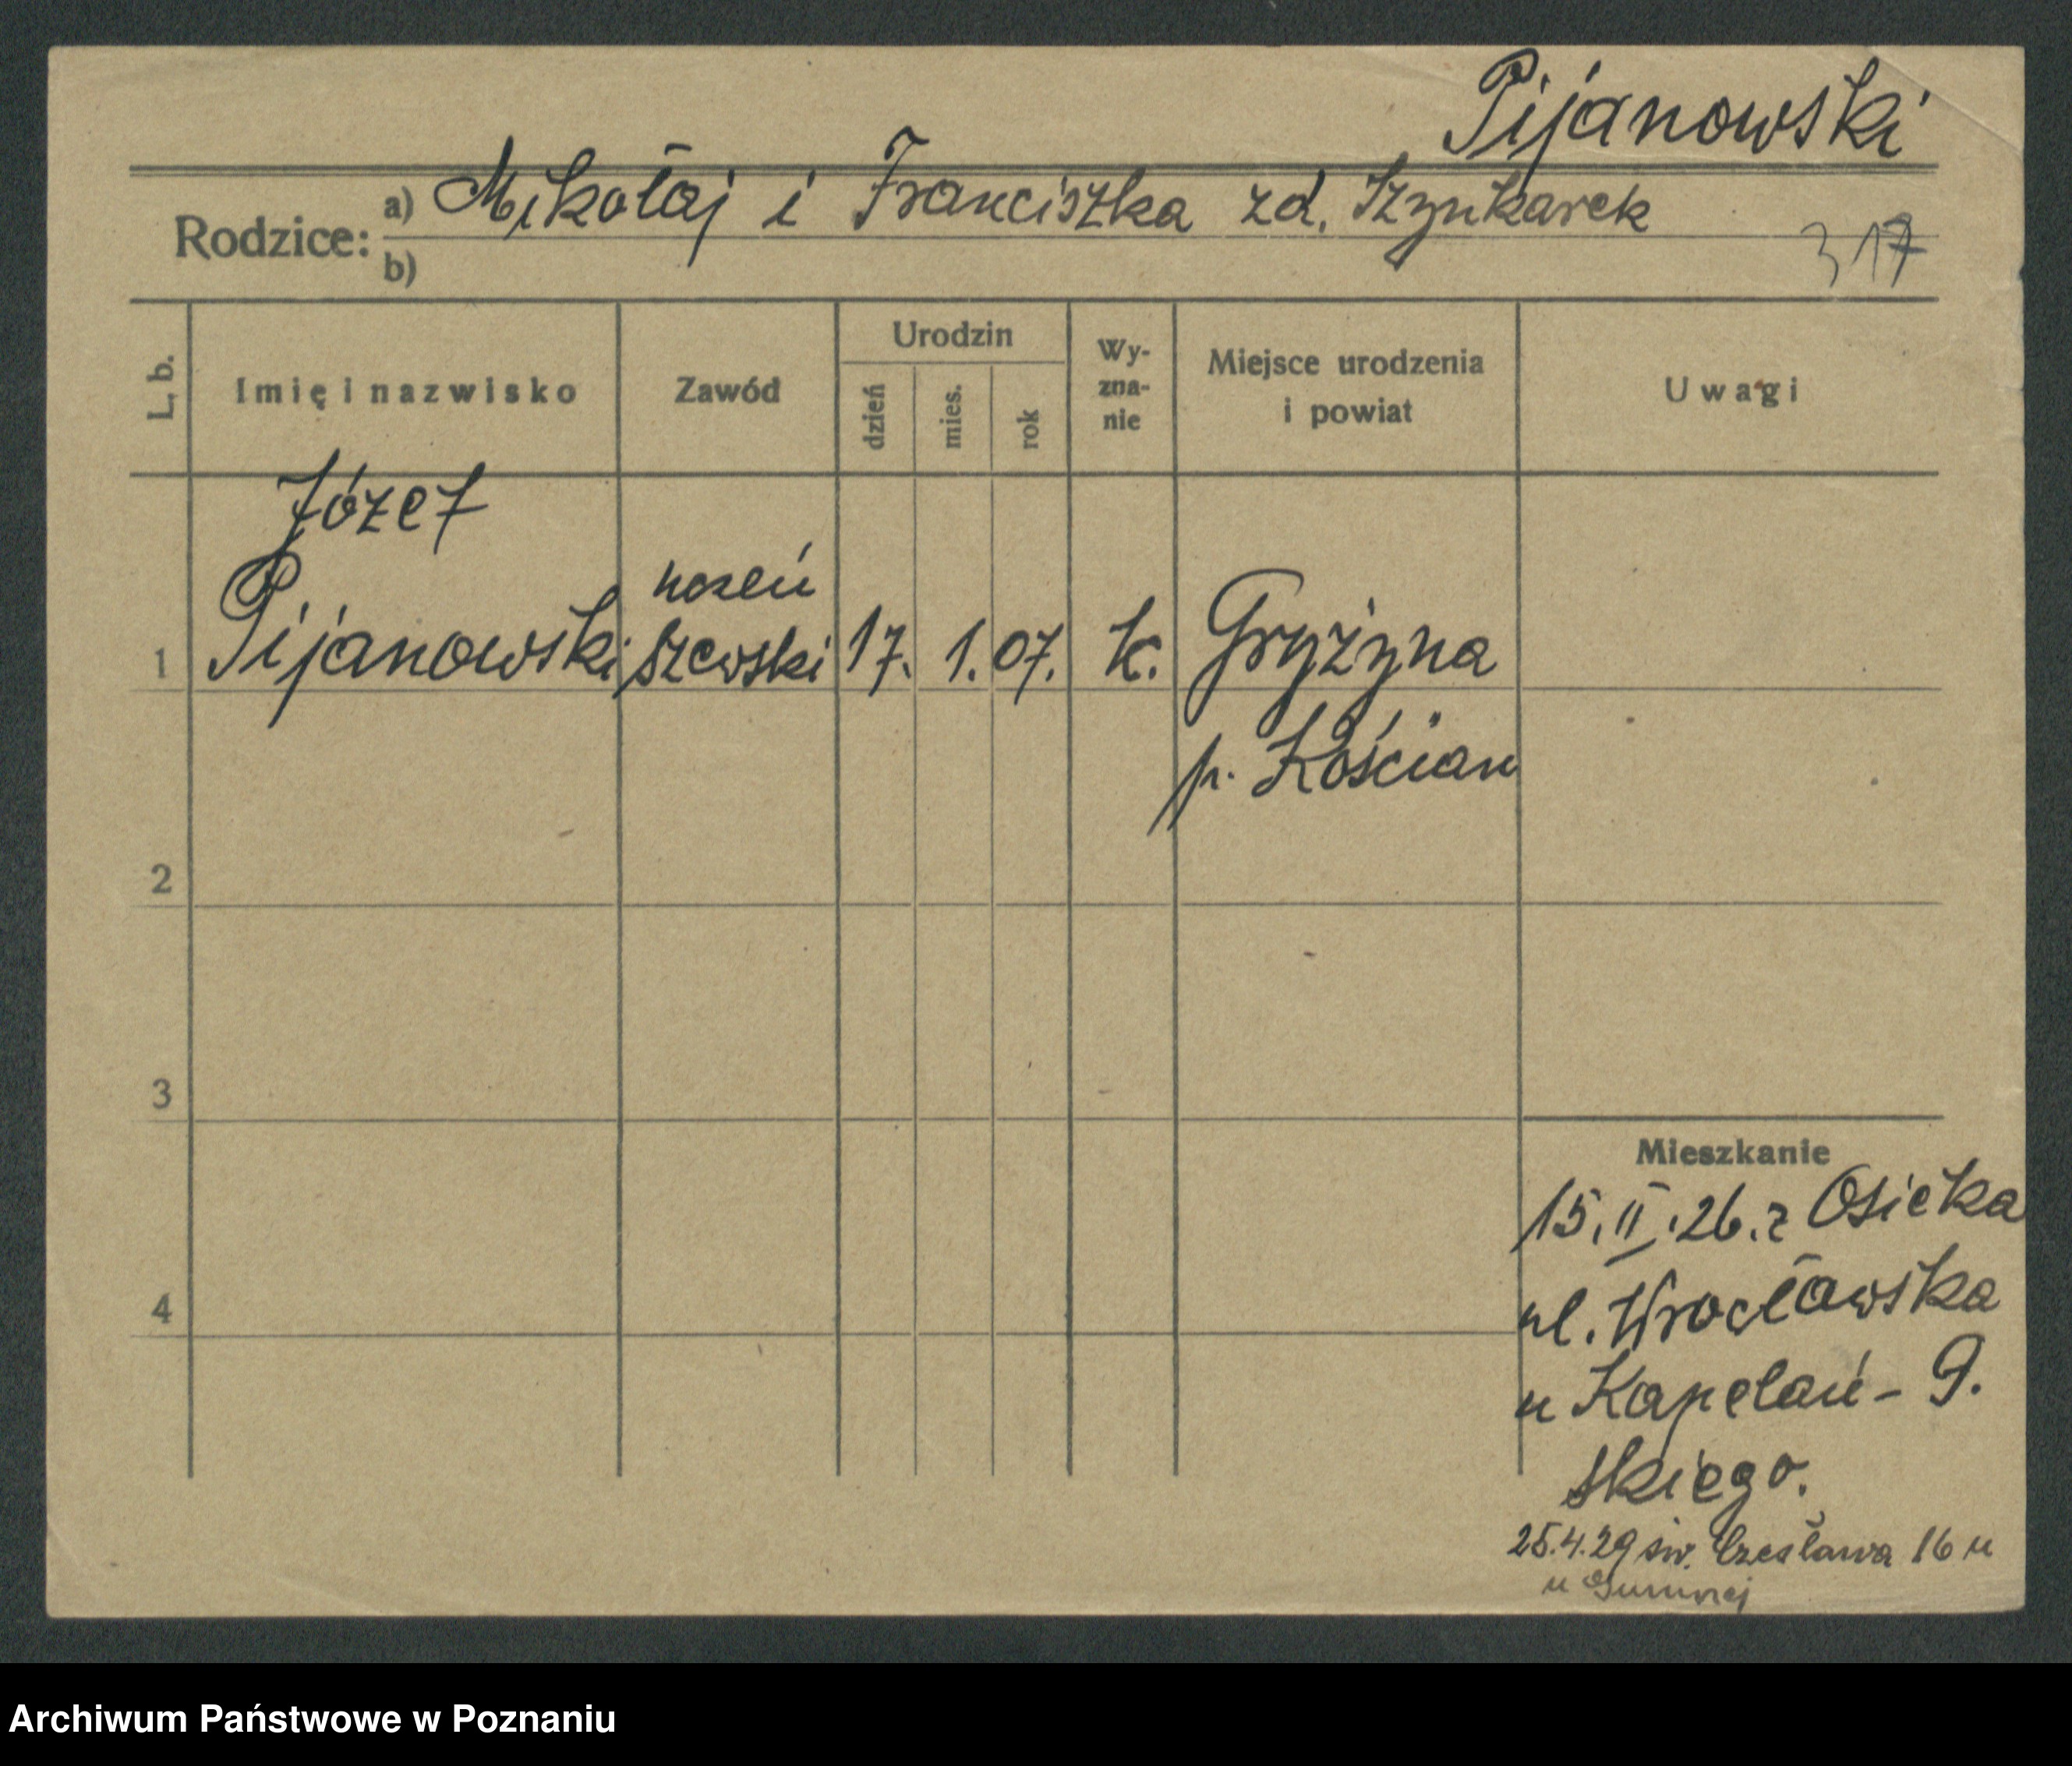 Pijanowski
Rodzice: a) Mikołaj i Franciszka zd. Szynkarek
b)
317
L. b.
Imię i nazwisko
Zawód
Urodzin
dzień
mies.
rok
Wy-
zna-
nie
Miejsce urodzenia
i powiat
Uwagi
Józef
uczeń
1 Pijanowski szewski 17. 1. 07. k. Gryżyna
p. Kościan
2
3
Mieszkanie
15.II.26. z Osieka
4
ul. Wrocławska
u Kapelań- 9.
skiego.
25.4.29 św. Czesława 16 u
u
Archiwum Państwowe w Poznaniu